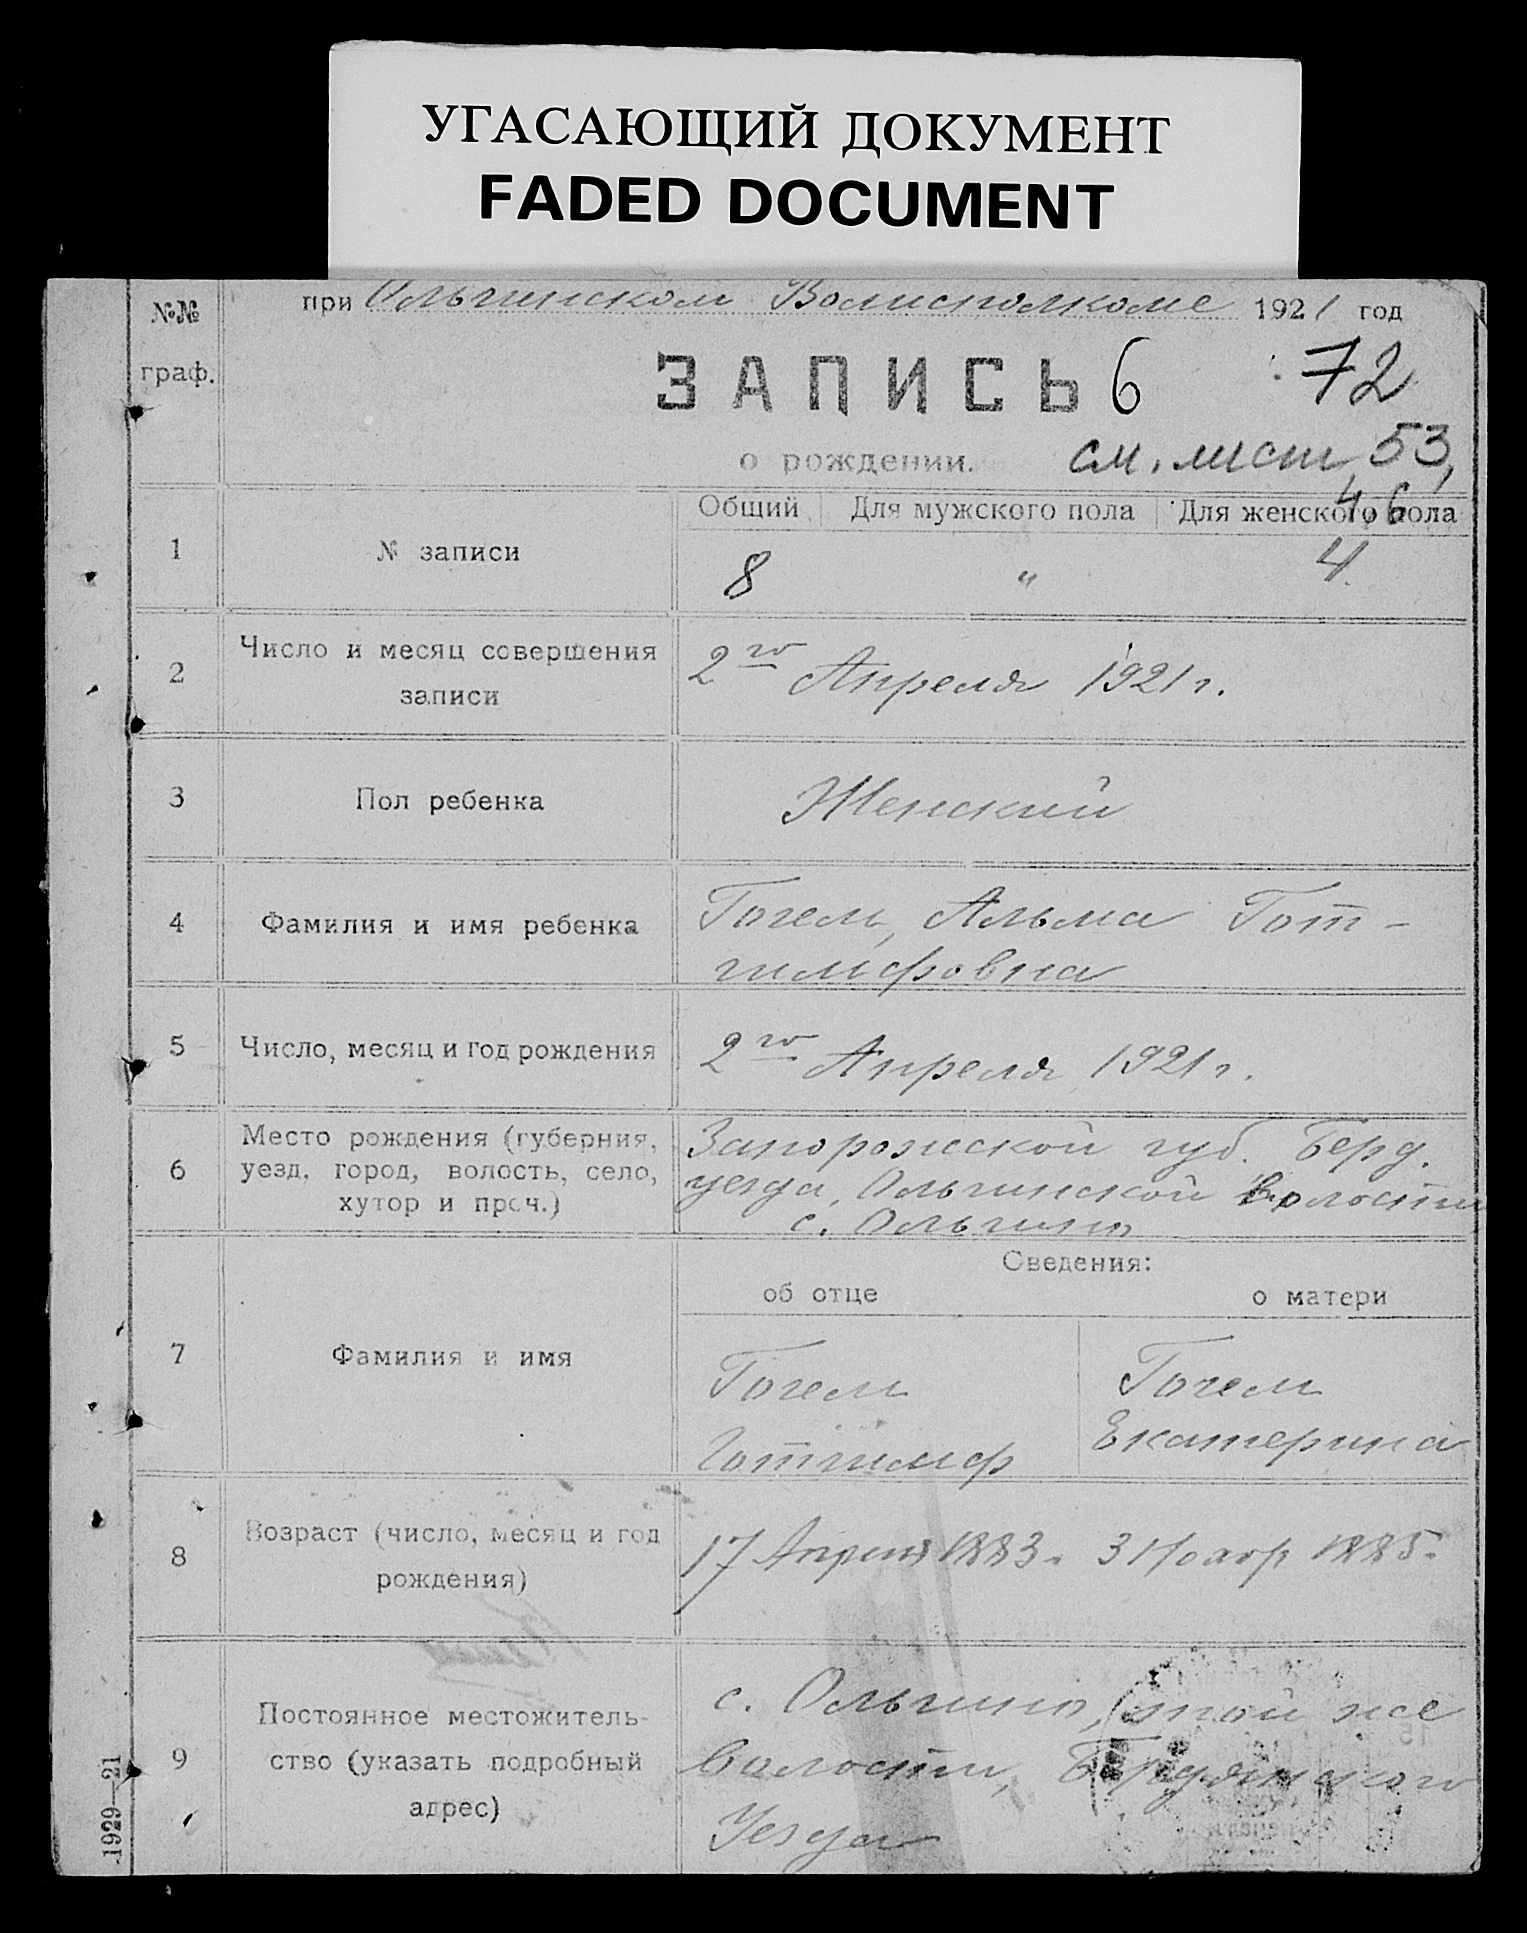 УГАСАЮЩИЙ ДОКУМЕНТ
FADED DOCUMENT
№№ граф.
при Ольгинском Волисполкоме 1921 год
ЗАПИСЬ 6 72
о рождении. см. лист 53,
46
Общий Для мужского пола Для женского пола
1 № записи 8 " 4
2 Число и месяц совершения
записи
2го Апреля 1921 г.
3 Пол ребенка Женский
4 Фамилия и имя ребенка Гогель, Альма Гот-
гильфовна
5 Число, месяц и год рождения 2го Апреля 1921 г.
6 Место рождения (губерния,
уезд, город, волость, село,
хутор и проч.)
Запорожской губ. Берд.
уезда, Ольгинской волости
с. Ольгино
Сведения:
об отце о матери
7 Фамилия и имя
Гогель Гогель
Готгильф Екатерина
8 Возраст (число, месяц и год
рождения)
17 Апреля 1883. 3 Ноябр 1885.
9 Постоянное местожитель-
ство (указать подробный
адрес)
с. Ольгино, той же
волости, Бердянского
Уезда
1929—21